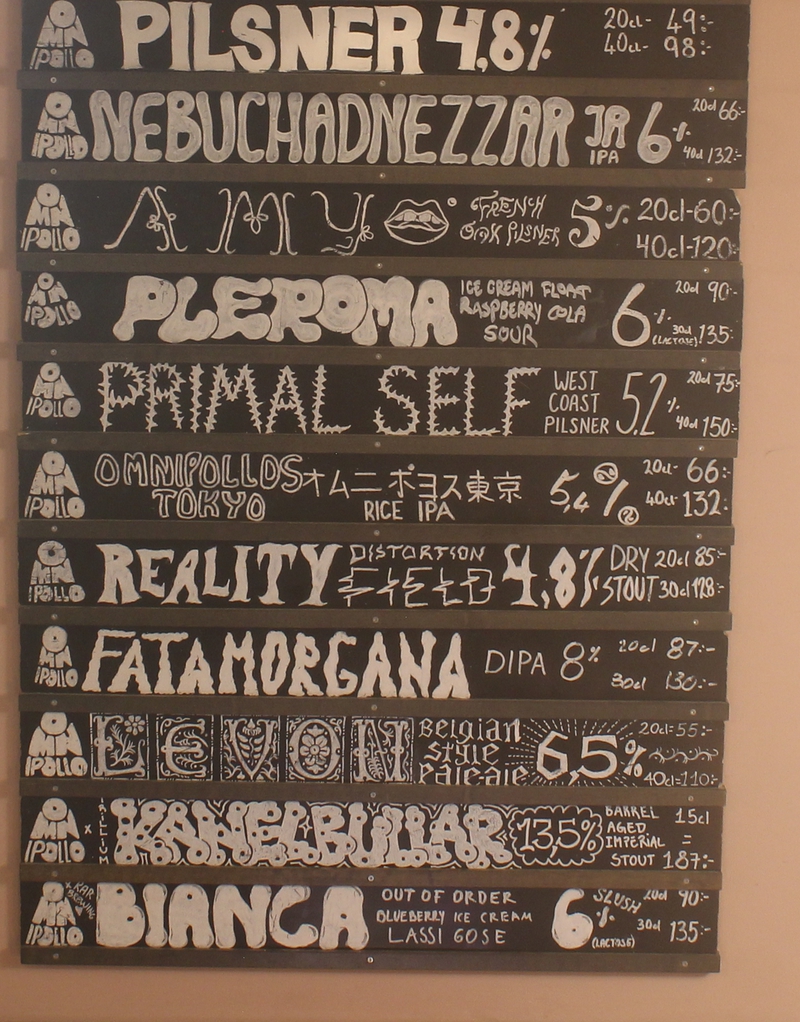 OMNIPOLLO PILSNER 4,8% 20cl- 49:-
40cl- 98:-
OMNIPOLLO NEBUCHADNEZZAR JR IPA 6% 20cl 66:-
40cl 132:-
OMNIPOLLO AMY FRENCH OAK PILSNER 5% 20cl-60:-
40cl-120:-
OMNIPOLLO PLEROMA ICE CREAM FLOAT
RASPBERRY COLA
SOUR 6% (LACTOSE) 20cl 90:-
30cl 135:-
OMNIPOLLO PRIMAL SELF WEST
COAST
PILSNER 5,2% 20cl 75:-
40cl 150:-
OMNIPOLLO OMNIPOLLOS
TOKYO オムニポヨス東京
RICE IPA 5,4% 20cl- 66:-
40cl- 132:-
OMNIPOLLO REALITY DISTORTION
FIELD 4,8% DRY
STOUT 20cl 85:-
30cl 128:-
OMNIPOLLO FATAMORGANA DIPA 8% 20cl 87:-
30cl 130:-
OMNIPOLLO LEVON Belgian
style
pale ale 6,5% 20cl=55:-
40cl=110:-
OMNIPOLLO x TRILLIUM KANELBULLAR 13,5% BARREL
AGED
IMPERIAL
STOUT 15cl
=
187:-
OMNIPOLLO BIANCA OUT OF ORDER
BLUEBERRY ICE CREAM
LASSI GOSE 6% (LACTOSE) SLUSH 20cl 90:-
30cl 135:-